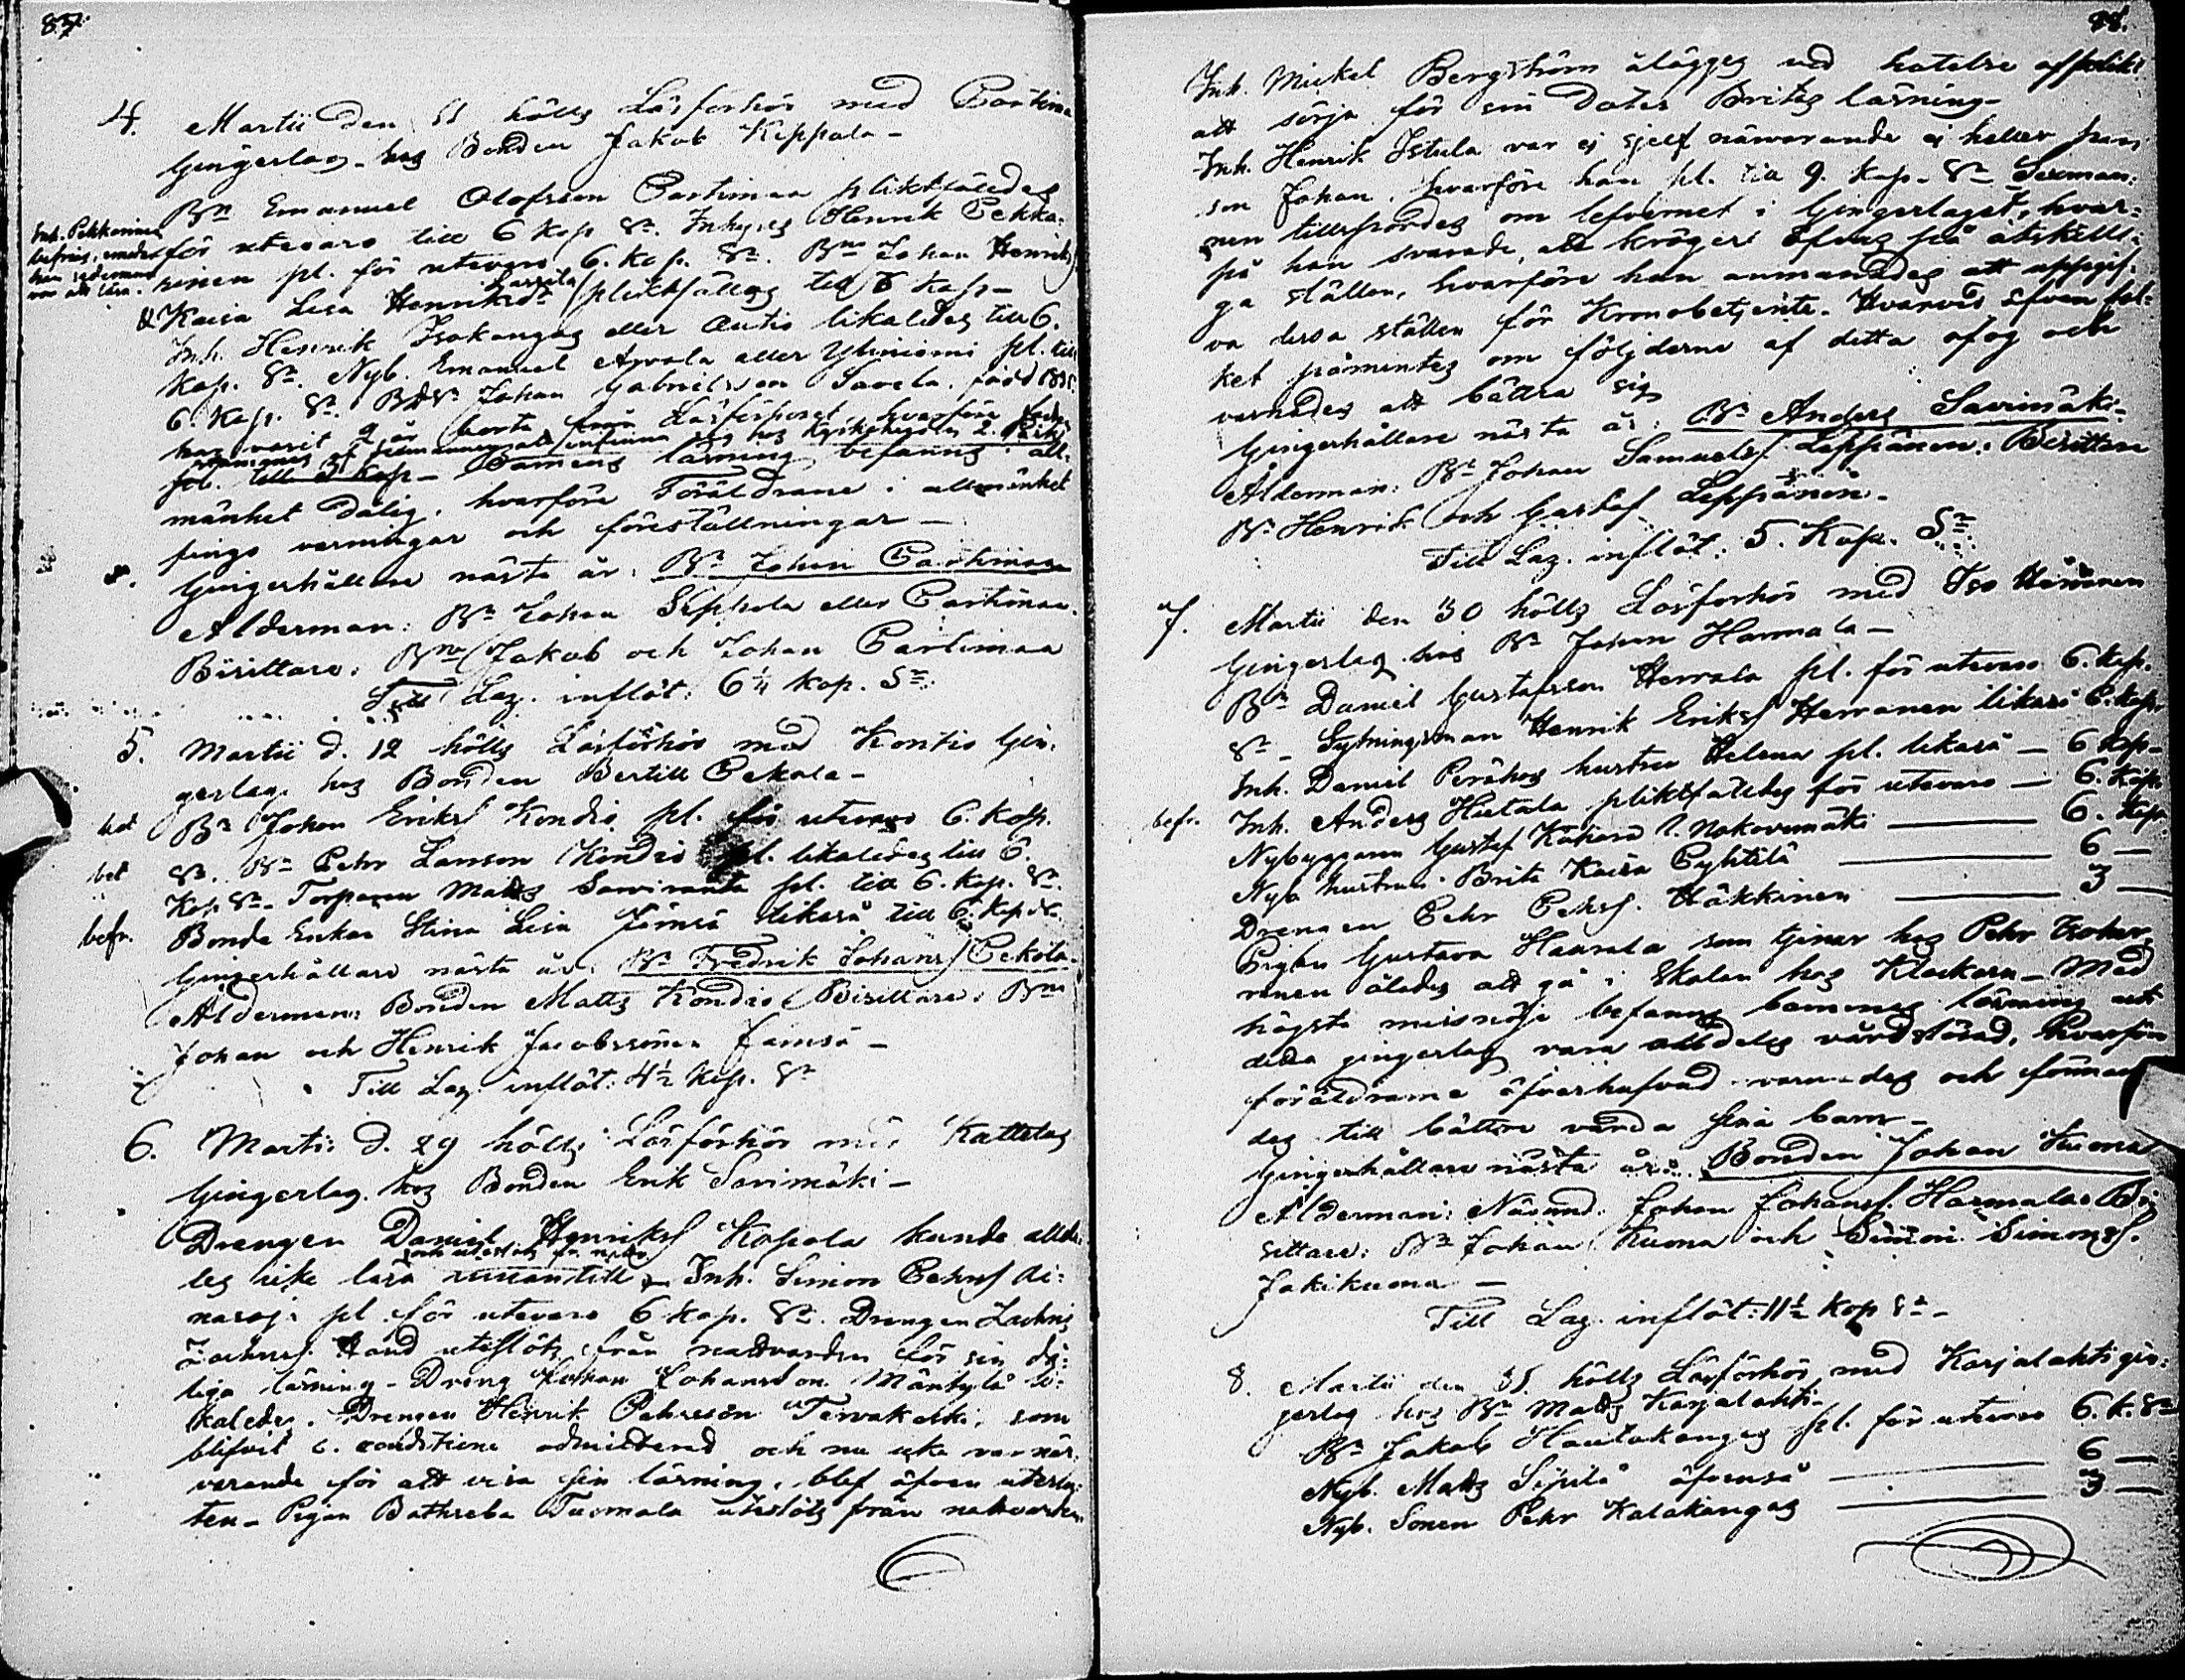 87.
4. Martii den 11 hölls Läsförhör med Partima
Gingerlag hos Bonden Jakob Keppola -
Bn Emanuel Olofsson Partimaa pliktfälldes
för utevaro till 6 Kop. Sr. Inhyses Henrik Pekka-
rinen pl. för utevaro 6. Kop. Sr. Bne Johan Henriks
Inh. Pekkarinen
befrias, emedan
han
var att lära.
& Kaisa Lisa Henriksdr pliktfälles till 6 Kop -
Inh. Henrik Isokangas eller Autio likaledes till 6.
Kop. Sr. Nyb. Emanuel eller Yliniemi pl. till
6. Kop. Sr. Johan Gabrielsson Savela, född 1835.
har varit 2 år borta från Läsförhöret, hvarföre
pl. till 3 Kop - Barnens läsning befanns i all-
mänhet dålig, hvarföre Föräldrarne i allmänhet
fingo varningar och föreställningar -
Gingerhållare nästa år: Bn Johan Partimaa
Ålderman: Bn Johan Seppola eller Partimaa.
Bisittare: Bne Jakob och Johan Partimaa
Till Laz. inflöt: 6¼ Kop. Sr.
5. Martii d. 12 hölls Läsförhör med Kontio Gin-
gerlag hos Bonden Bertill Pekola -
bet Bn Johan Eriks Kondio pl. för utevaro 6. Kop.
bet Sr. Bn Pehr Larsson Kondio pl. likaledes till 6.
Kop. Sr. Torparen Matts Saviranta pl. till 6. Kop. Sr.
befr. Bonde Enkan Stina Lisa Jämsä likaså till 6. Kop. Sr.
Gingerhållare nästa år: Bn Fredrik Johans Pekola -
Ålderman: Bonden Matts Kondio Bisittare: Bne
Johan och Henrik Jacobssöner Jämsä -
Till Laz. inflöt: 4½ Kop. Sr
6. Martii d. 29 hölls Läsförhör med Kattelus
Gingerlag hos Bonden Erik Savimäki -
Drengen Daniel Henriks Kopola kunde allde-
les icke läsa innantill - Inh. Simon Pehrs Ai-
naroj. pl för utevaro 6 Kop. Sr. Drengen Zachris
Zachris. Haud uteslöts från nattvarden för sin då-
liga läsning - Dreng Johan Johansson Mäntylä li-
kaledes. Drengen Henrik Pehrsson Tervakoski, som
blifvit c. conditione admitterad och nu icke var när-
varande för att visa sin läsning, blef äfven uteslu-
ten - Pigan Bathseba Tuomala uteslöts från nattvarden
88.
Inh. Mickel Bergström ålägges vid hotelse af plikt
att sörja för sin Dotter Britas läsning -
Inh. Henrik Istula var ej sjelf närvarande ej heller hans
son Johan, hvarföre han pl. till 9. Kop. Sr Sexman-
nen tillspordes om lefvernet i Gingerlaget, hvar-
på han svarade, att krögeri öfvas på åtskilli-
ga ställen, hvarföre han anmanades att uppgif-
va dessa ställen för Kronobetjente. Hvarvid äfven fol-
ket påmintes om följderne af detta ofog och
varnades att bättra sig
Gingerhållare nästa år: Bn Anders Savimäki -
Ålderman: Bn Johan Samuels Leppänen: Bisittare
Bn Henrik och Gustaf Leppänen -
Till Laz. inflöt: 5. Kop. Sr
7. Martii den 30 hölls Läsförhör med Iso
Gingerlag hos Bn Johan Harmala -
Bn Daniel Gustafsson Herrala pl. för utevaro 6. Kop.
Sr - Sytningsman Henrik Eriks Herranen likaså 6. Kop.
Inh. Daniel Perähos hustru Helena pl. likaså - 6 Kop -
befr. Inh. Anders Hietala pliktfälldes för utevaro - 6. Kop.
Nybyggaren Gustaf 6. Kop
Nyb. hustrun Brita Kaisa Pyhtilä 6 -
Drengen Pehr Pehrs. Häkkinen 3 -
Pigan Gustava Haurala som tjenar hos Pehr
ålades att gå i Skolan hos Klockaren - Med
högsta missnöje befanns barnens läsning uti
detta gingerlag vara alldeles vårdslösad, hvarföre
föräldrarne varnades och förman-
des till bättre vårda sina barn -
Gingerhållare nästa år: Bonden Johan Kuona
Ålderman: Nämnd. Johan Johans. Harmala Bi-
sittare: Bn Johan Kuona och Simon Simons.
Jakikuona -
Till Laz. inflöt: 11½ Kop Sr -
8. Martii den 31 hölls Läsförhör med Karjalahti gin-
gerlag hos Bn Matts Karjalahti -
Bn Jakob Hautakangas pl. för utevaro 6. K. Sr
Nyb. Matts Sipilä äfvenså 6 -
Nyb. Sonen Pehr Kalakangas 3 -